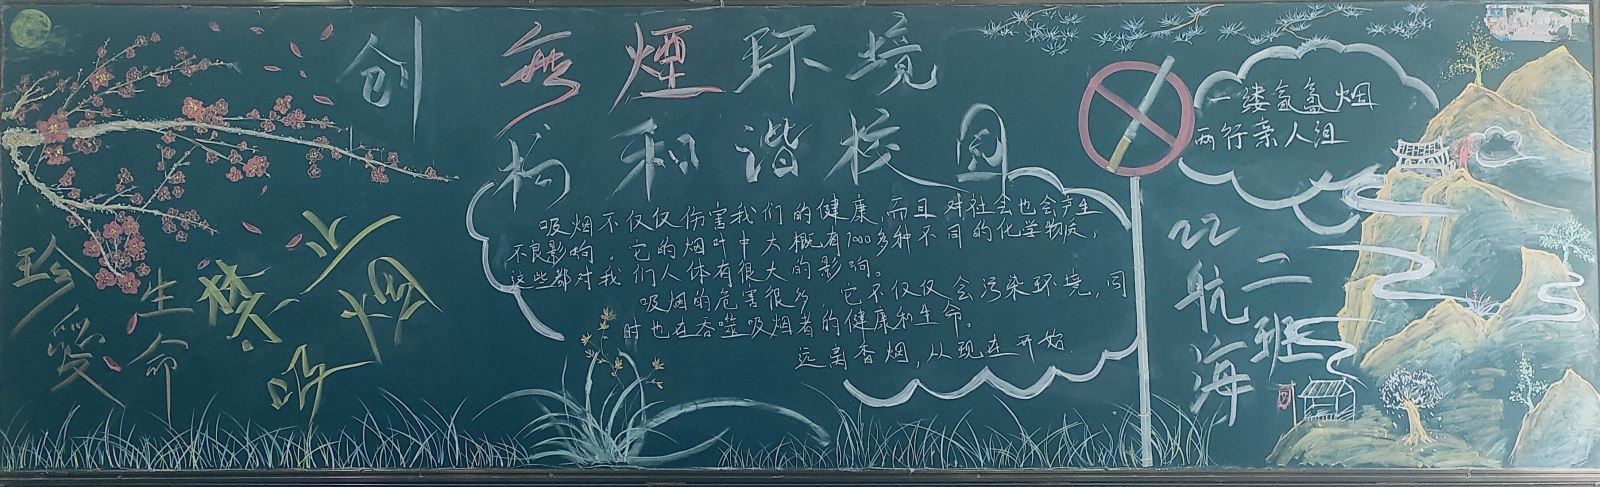 创無煙环境
构和谐校园
珍爱生命
禁止吸烟
吸烟不仅仅伤害我们的健康,而且对社会也会产生
不良影响。它的烟叶中大概有1000多种不同的化学物质,
这些都对我们人体有很大的影响。
吸烟的危害很多,它不仅仅会污染环境,同
时也在吞噬吸烟者的健康和生命。
远离香烟,从现在开始.
一缕氤氲烟
两行亲人泪
22航海
二班